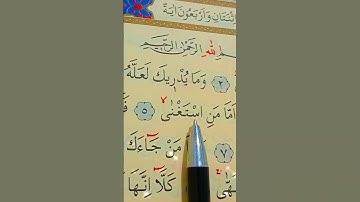 ثْنَتَانِ وَأَرْبَعُونَ اٰيَةً
اللهِ الرَّحْمٰنِ الرَّحِيمِ
﴿٢﴾ وَمَا يُدْرِيكَ لَعَلَّهُ
اَمَّا مَنِ اسْتَغْنٰى ﴿٥﴾
﴿٧﴾ مَنْ جَاءَكَ
كَلَّا اِنَّهَا